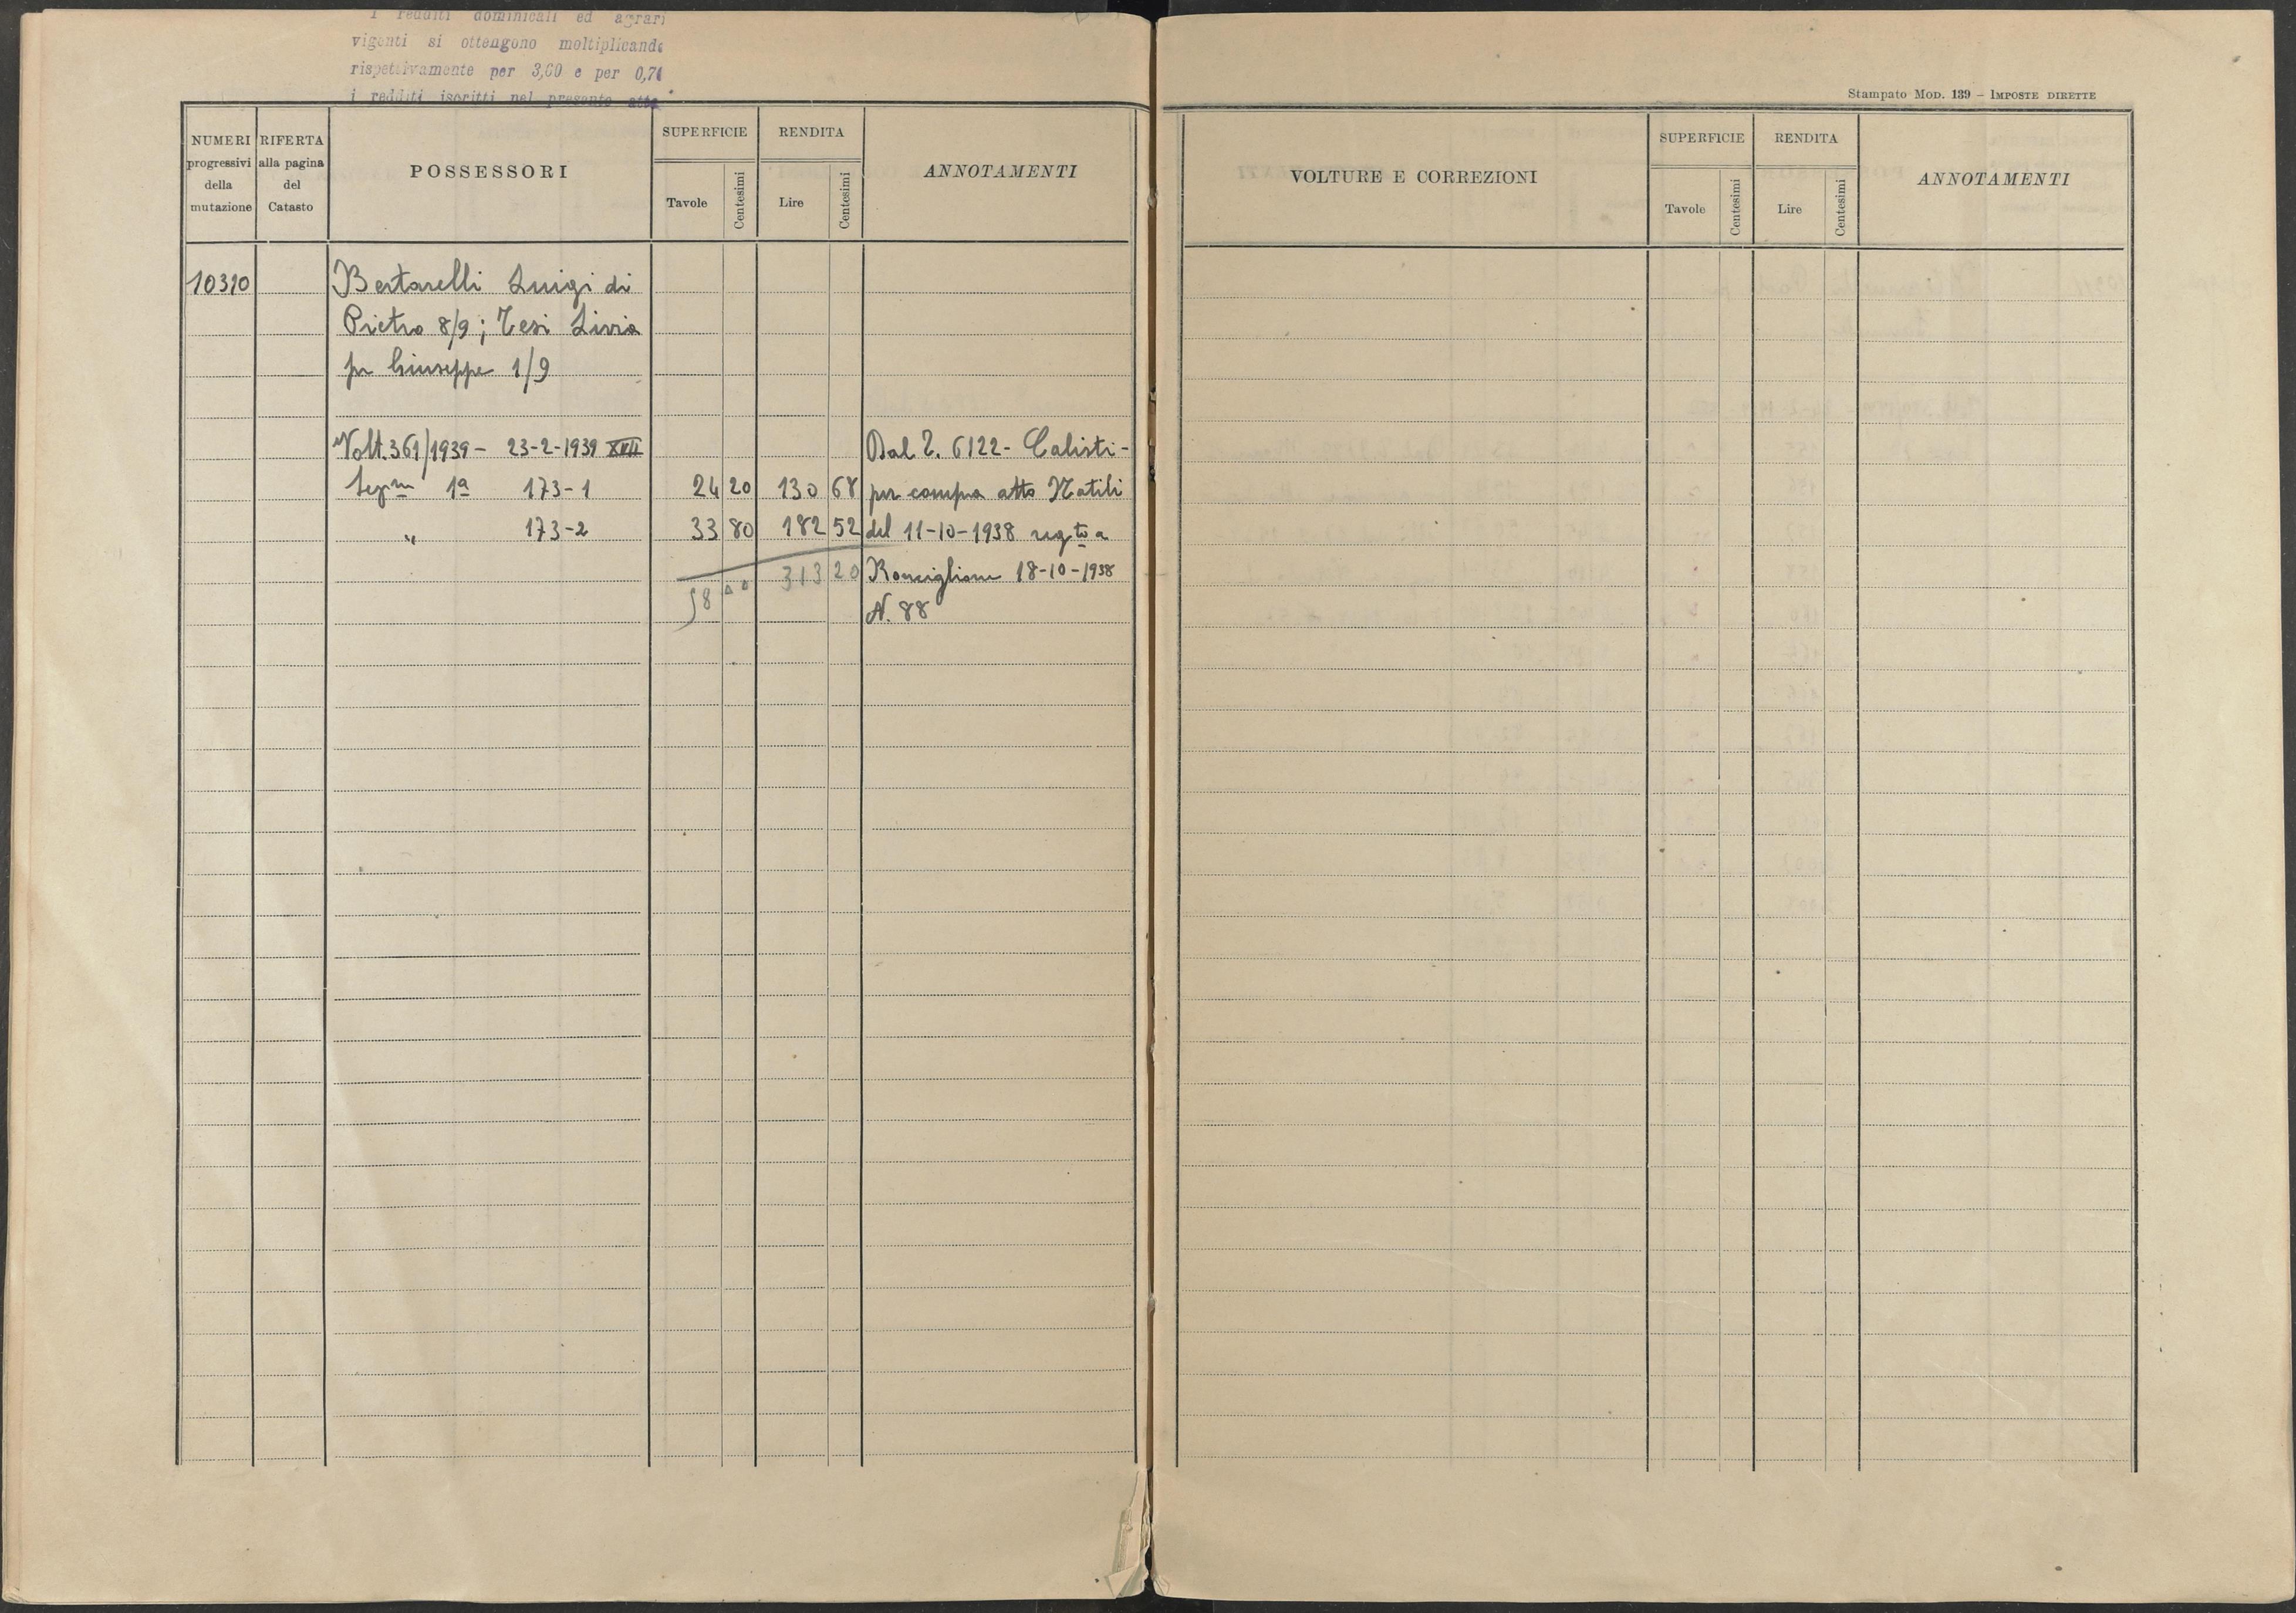 I redditi dominicali ed agrari
vigenti si ottengono moltiplicando
rispettivamente per 3,60 e per
i redditi iscritti nel presente atto
Stampato Mod. 139 – Imposte dirette
NUMERI progressivi della mutazione
RIFERTA alla pagina del Catasto
POSSESSORI
SUPERFICIE
Tavole
Centesimi
RENDITA
Lire
Centesimi
ANNOTAMENTI
10310
Bertarelli Luigi di
Pietro 8/9; Tesi Livia
fu Giuseppe 1/9
Volt. 361/1939 – 23-2-1939 XVII Dal T. 6122 - Calisti -
Sezne 1a 173-1 24 20 130 68 per compra atto Natili
„ 173-2 33 80 182 52 del 11-10-1938 regto a
58 00 313 20 Ronciglione 18-10-1938
N. 88
VOLTURE E CORREZIONI
SUPERFICIE
Tavole
Centesimi
RENDITA
Lire
Centesimi
ANNOTAMENTI